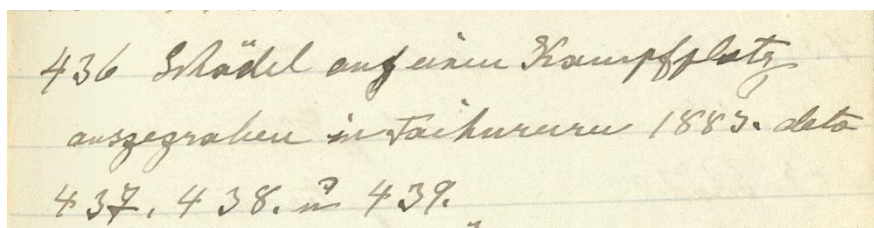 436 Schädel auf einem Kampfplatz
ausgegraben in Taihururu 1883. deto
437, 438. u 439.